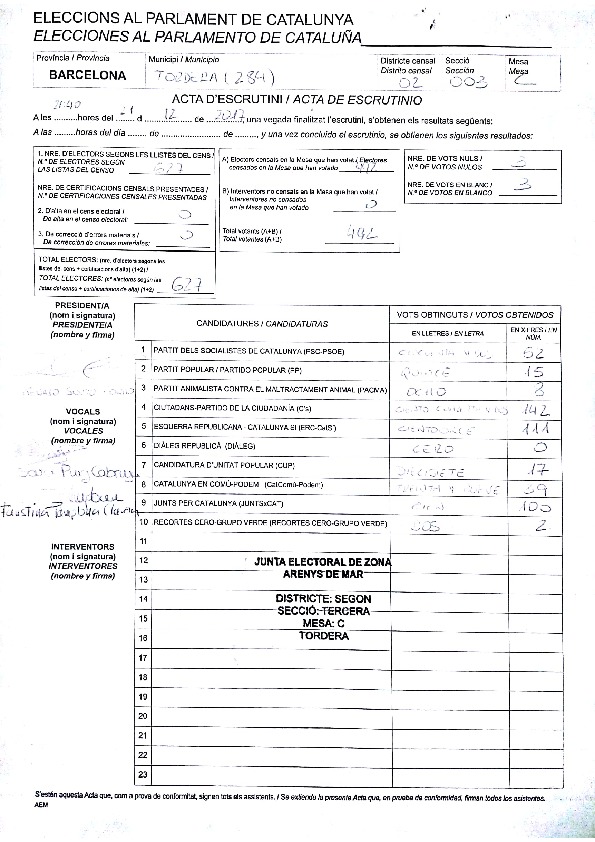 ELECCIONS AL PARLAMENT DE CATALUNYA
ELECCIONES AL PARLAMENTO DE CATALUÑA
Província / Provincia
BARCELONA
Municipi / Municipio
TORDERA (284)
Districte censal
Distrito censal
02
Secció
Sección
003
Mesa
Mesa
C
ACTA D'ESCRUTINI / ACTA DE ESCRUTINIO
A les 21:40 hores del 21 d 12 de 2017, una vegada finalitzat l'escrutini, s'obtenen els resultats següents:
A las ..........horas del día ....... de .......... de ........., y una vez concluido el escrutinio, se obtienen los siguientes resultados:
1. NRE. D'ELECTORS SEGONS LES LLISTES DEL CENS /
N.º DE ELECTORES SEGÚN
LAS LISTAS DEL CENSO 627
NRE. DE CERTIFICACIONS CENSALS PRESENTADES /
N.º DE CERTIFICACIONES CENSALES PRESENTADAS
2. D'alta en el cens electoral /
De alta en el censo electoral: 0
3. De correcció d'errors materials /
De corrección de errores materiales: 0
TOTAL ELECTORS: (nre. d'electors segons les
llistes del cens + certificacions d'alta) (1+2) /
TOTAL ELECTORES: (nº electores según las
listas del censo + certificaciones de alta) (1+2) 627
A) Electors censats en la Mesa que han votat / Electores
censados en la Mesa que han votado 442
B) Interventors no censats en la Mesa que han votat /
Interventores no censados
en la Mesa que han votado 0
Total votants (A+B) /
Total votantes (A+B) 442
NRE. DE VOTS NULS /
N.º DE VOTOS NULOS 3
NRE. DE VOTS EN BLANC /
N.º DE VOTOS EN BLANCO 3
PRESIDENT/A
(nom i signatura)
PRESIDENTE/A
(nombre y firma)
VOCALS
(nom i signatura)
VOCALES
(nombre y firma)
INTERVENTORS
(nom i signatura)
INTERVENTORES
(nombre y firma)
CANDIDATURES / CANDIDATURAS
VOTS OBTINGUTS / VOTOS OBTENIDOS
EN LLETRES / EN LETRA
EN XIFRES / EN NÚM.
1 PARTIT DELS SOCIALISTES DE CATALUNYA (PSC-PSOE)
2 PARTIT POPULAR / PARTIDO POPULAR (PP) QUINCE 15
3 PARTIT ANIMALISTA CONTRA EL MALTRACTAMENT ANIMAL (PACMA) OCHO 8
4 CIUTADANS-PARTIDO DE LA CIUDADANÍA (C's) 142
5 ESQUERRA REPUBLICANA - CATALUNYA SÍ (ERC-CatSí) CIENTO ONCE 111
6 DIÀLEG REPUBLICÀ (DIÀLEG) CERO 0
7 CANDIDATURA D'UNITAT POPULAR (CUP) DIECISIETE 17
8 CATALUNYA EN COMÚ-PODEM (CatComú-Podem)
9 JUNTS PER CATALUNYA (JUNTSxCAT) CIEN 100
10 RECORTES CERO-GRUPO VERDE (RECORTES CERO-GRUPO VERDE) DOS 2
11
12
13
14
15
16
17
18
19
20
21
22
23
JUNTA ELECTORAL DE ZONA
ARENYS DE MAR
DISTRICTE: SEGON
SECCIÓ: TERCERA
MESA: C
TORDERA
S'estén aquesta Acta que, com a prova de conformitat, signen tots els assistents. / Se extiende la presente Acta que, en prueba de conformidad, firman todos los asistentes.
AEM